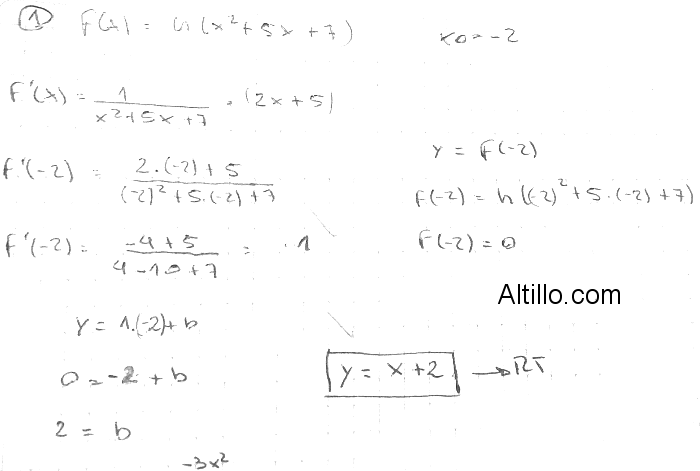 ① F(x) = ln(x²+5x+7)
x0 = -2
F'(x) = 1/(x²+5x+7) · (2x+5)
F'(-2) = (2·(-2)+5)/((-2)²+5·(-2)+7)
F'(-2) = (-4+5)/(4-10+7) = 1
y = 1·(-2)+b
0 = -2 + b
2 = b
-3x²
y = F(-2)
F(-2) = ln((-2)²+5·(-2)+7)
F(-2) = 0
Altillo.com
y = x+2 → RT